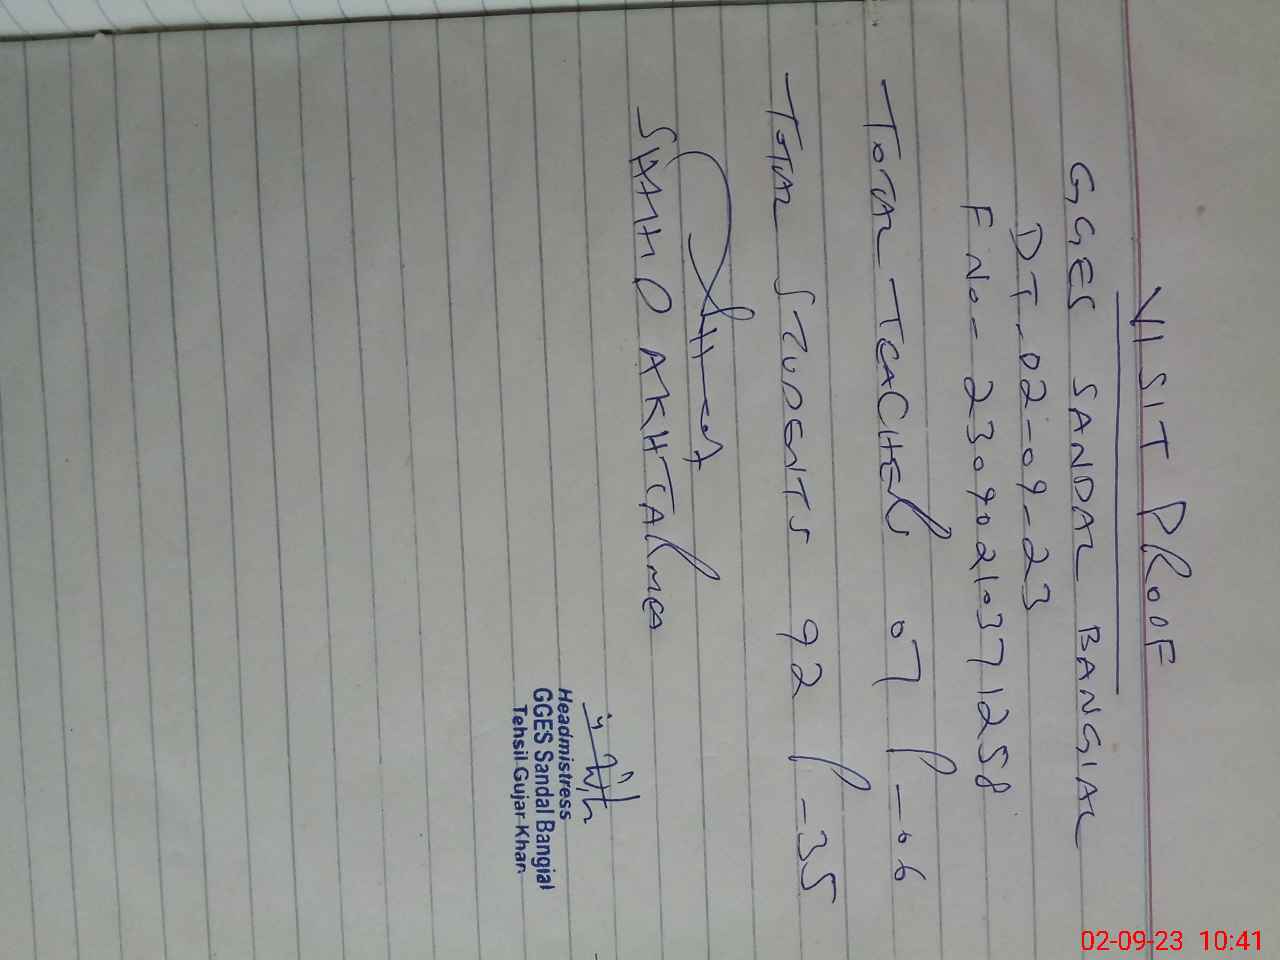 VISIT PROOF
GGES SANDAL BANGIAL
DT-02-09-23
F No- 23090210371258
TOTAL TEACHER 07 P-06
TOTAL STUDENTS 92 P-35
AKHTAR
Headmistress
GGES Sandal Bangial
Tehsil Gujar Khan
02-09-23 10:41